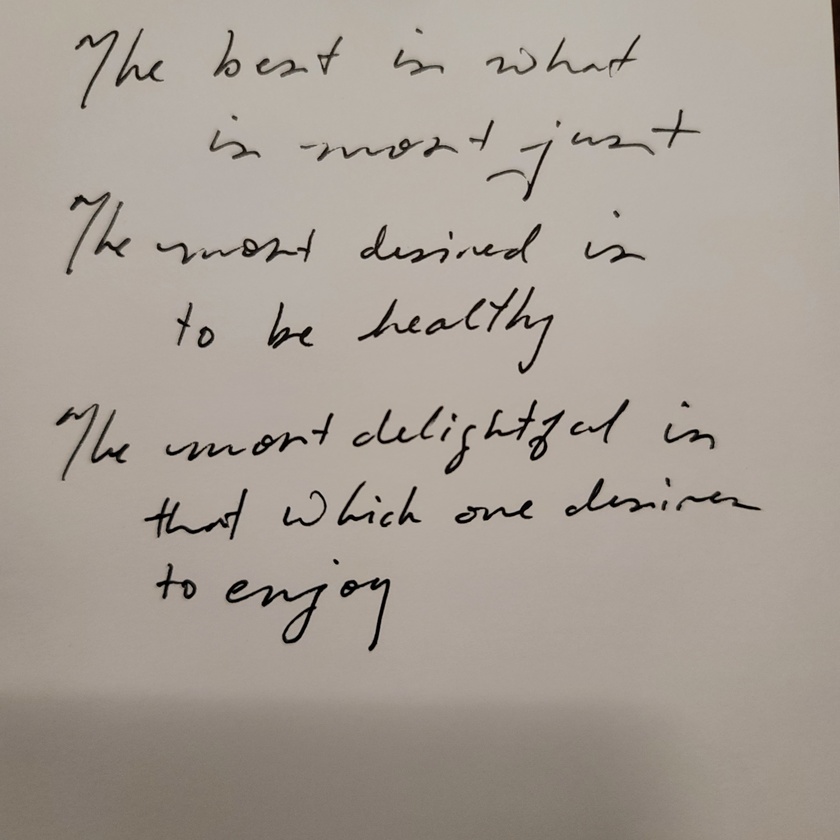 The best is what
is most just
The most desired is
to be healthy
The most delightful is
that which one desires
to enjoy